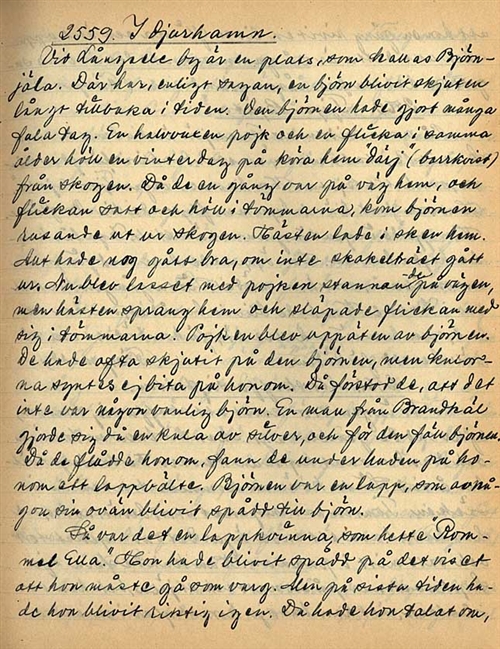 2559. I djurhamn.
Vid Långsele by är en plats, som kallas Björn-
jäla. Där har, enligt sagan, en björn blivit skjuten
långt tillbaka i tiden. Den björnen hade gjort många
fula tag. En halvvuxen pojk och en flicka i samma
ålder höll en vinterdag på köra hem "därj" (barrkvist)
från skogen. Då de en gång var på väg hem, och
flickan satt och höll i tömmarna, kom björnen
rusande ut ur skogen. Hästen lade i sken hem.
Allt hade nog gått bra, om inte skakelträet gått
ur. Nu blev lasset med pojken stannande på vägen,
men hästen sprang hem och släpade flickan med
sig i tömmarna. Pojken blev uppäten av björnen.
De hade ofta skjutit på den björnen, men kulor-
na syntes ej bita på honom. Då förstod de, att det
inte var någon vanlig björn. En man från Brandkäl
gjorde sig då en kula av silver, och för den föll björnen.
Då de flådde honom, fann de under huden på ho-
nom ett lappbälte. Björnen var en lapp, som av nå-
gon sin ovän blivit spådd till björn.
Så var det en lappkvinna, som hette "Rom-
mel Ella." Hon hade blivit spådd på det viset
att hon måste gå som varg. Men på sista tiden ha-
de hon blivit riktig igen. Då hade hon talat om,